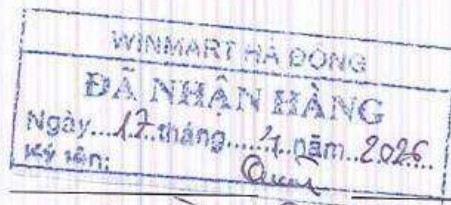 WINMART HÀ ĐÔNG
ĐÃ NHẬN HÀNG
Ngày...17.tháng.....4.năm..2026....
Ký tên: